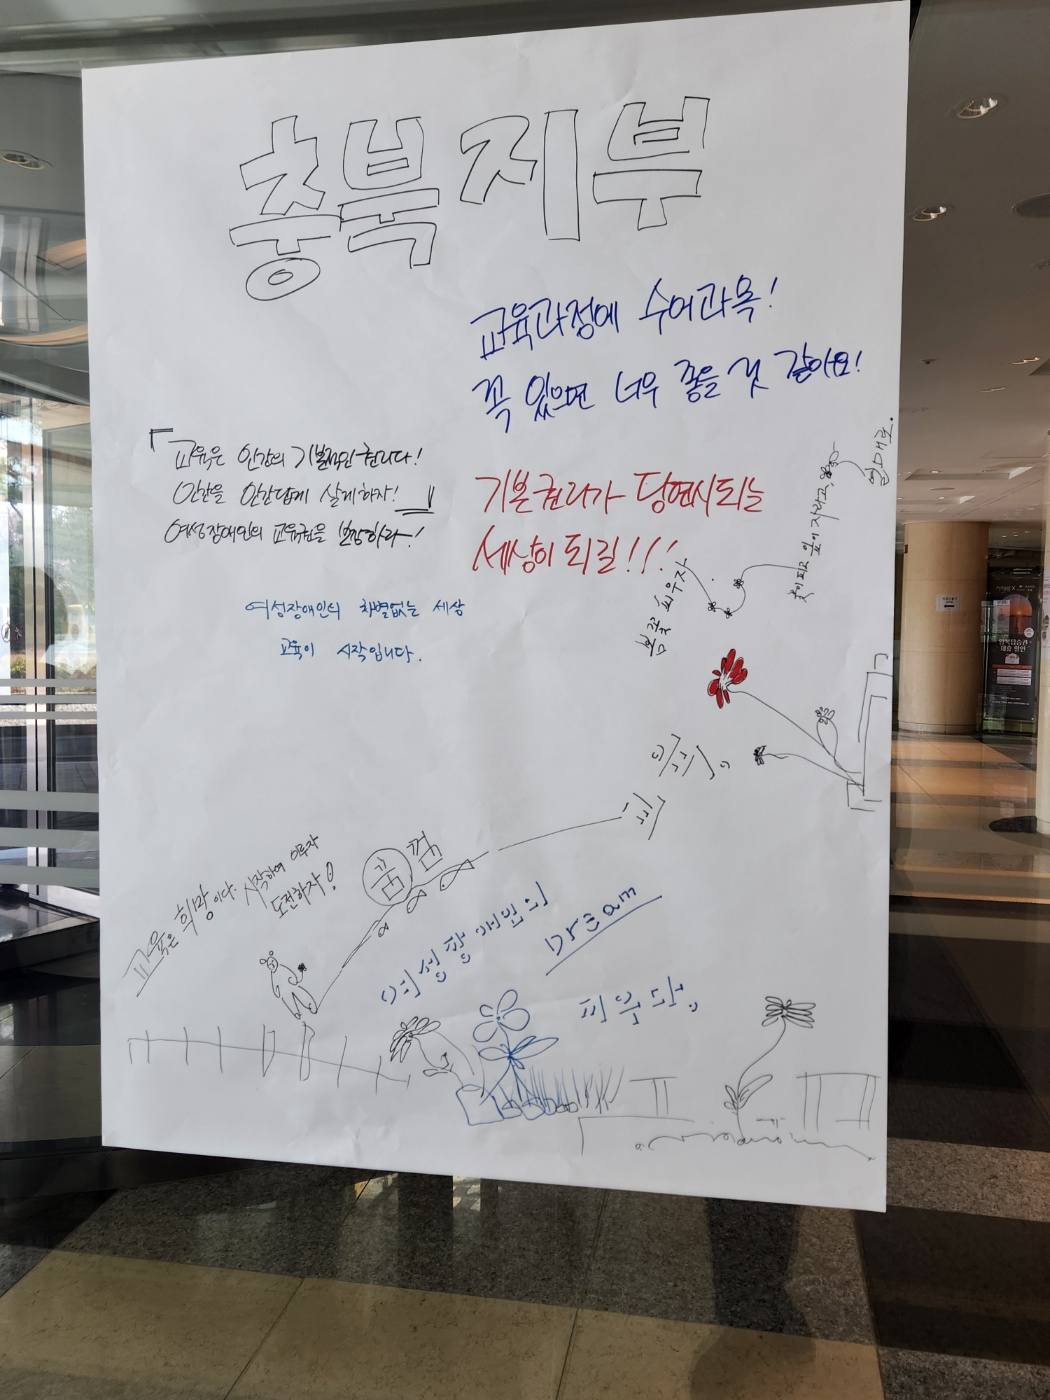 충북지부
교육과정에 수어과목!
꼭 있으면 너무 좋을 것 같아요!
「교육은 인간의 기본적인 권리다!
인간을 인간답게 살게하자!」
여성장애인의 교육권을 보장하라!
기본권리가 당연시되는
세상이 되길!!!
여성장애인의 차별없는 세상
교육이 시작입니다.
봄꽃 피우자
꽃이 되고 잎이 자라고,
열매로.
교육은 희망이다. 시작하여 이루자
도전하자!
꿈
여성장애인의
Dream
피우다,